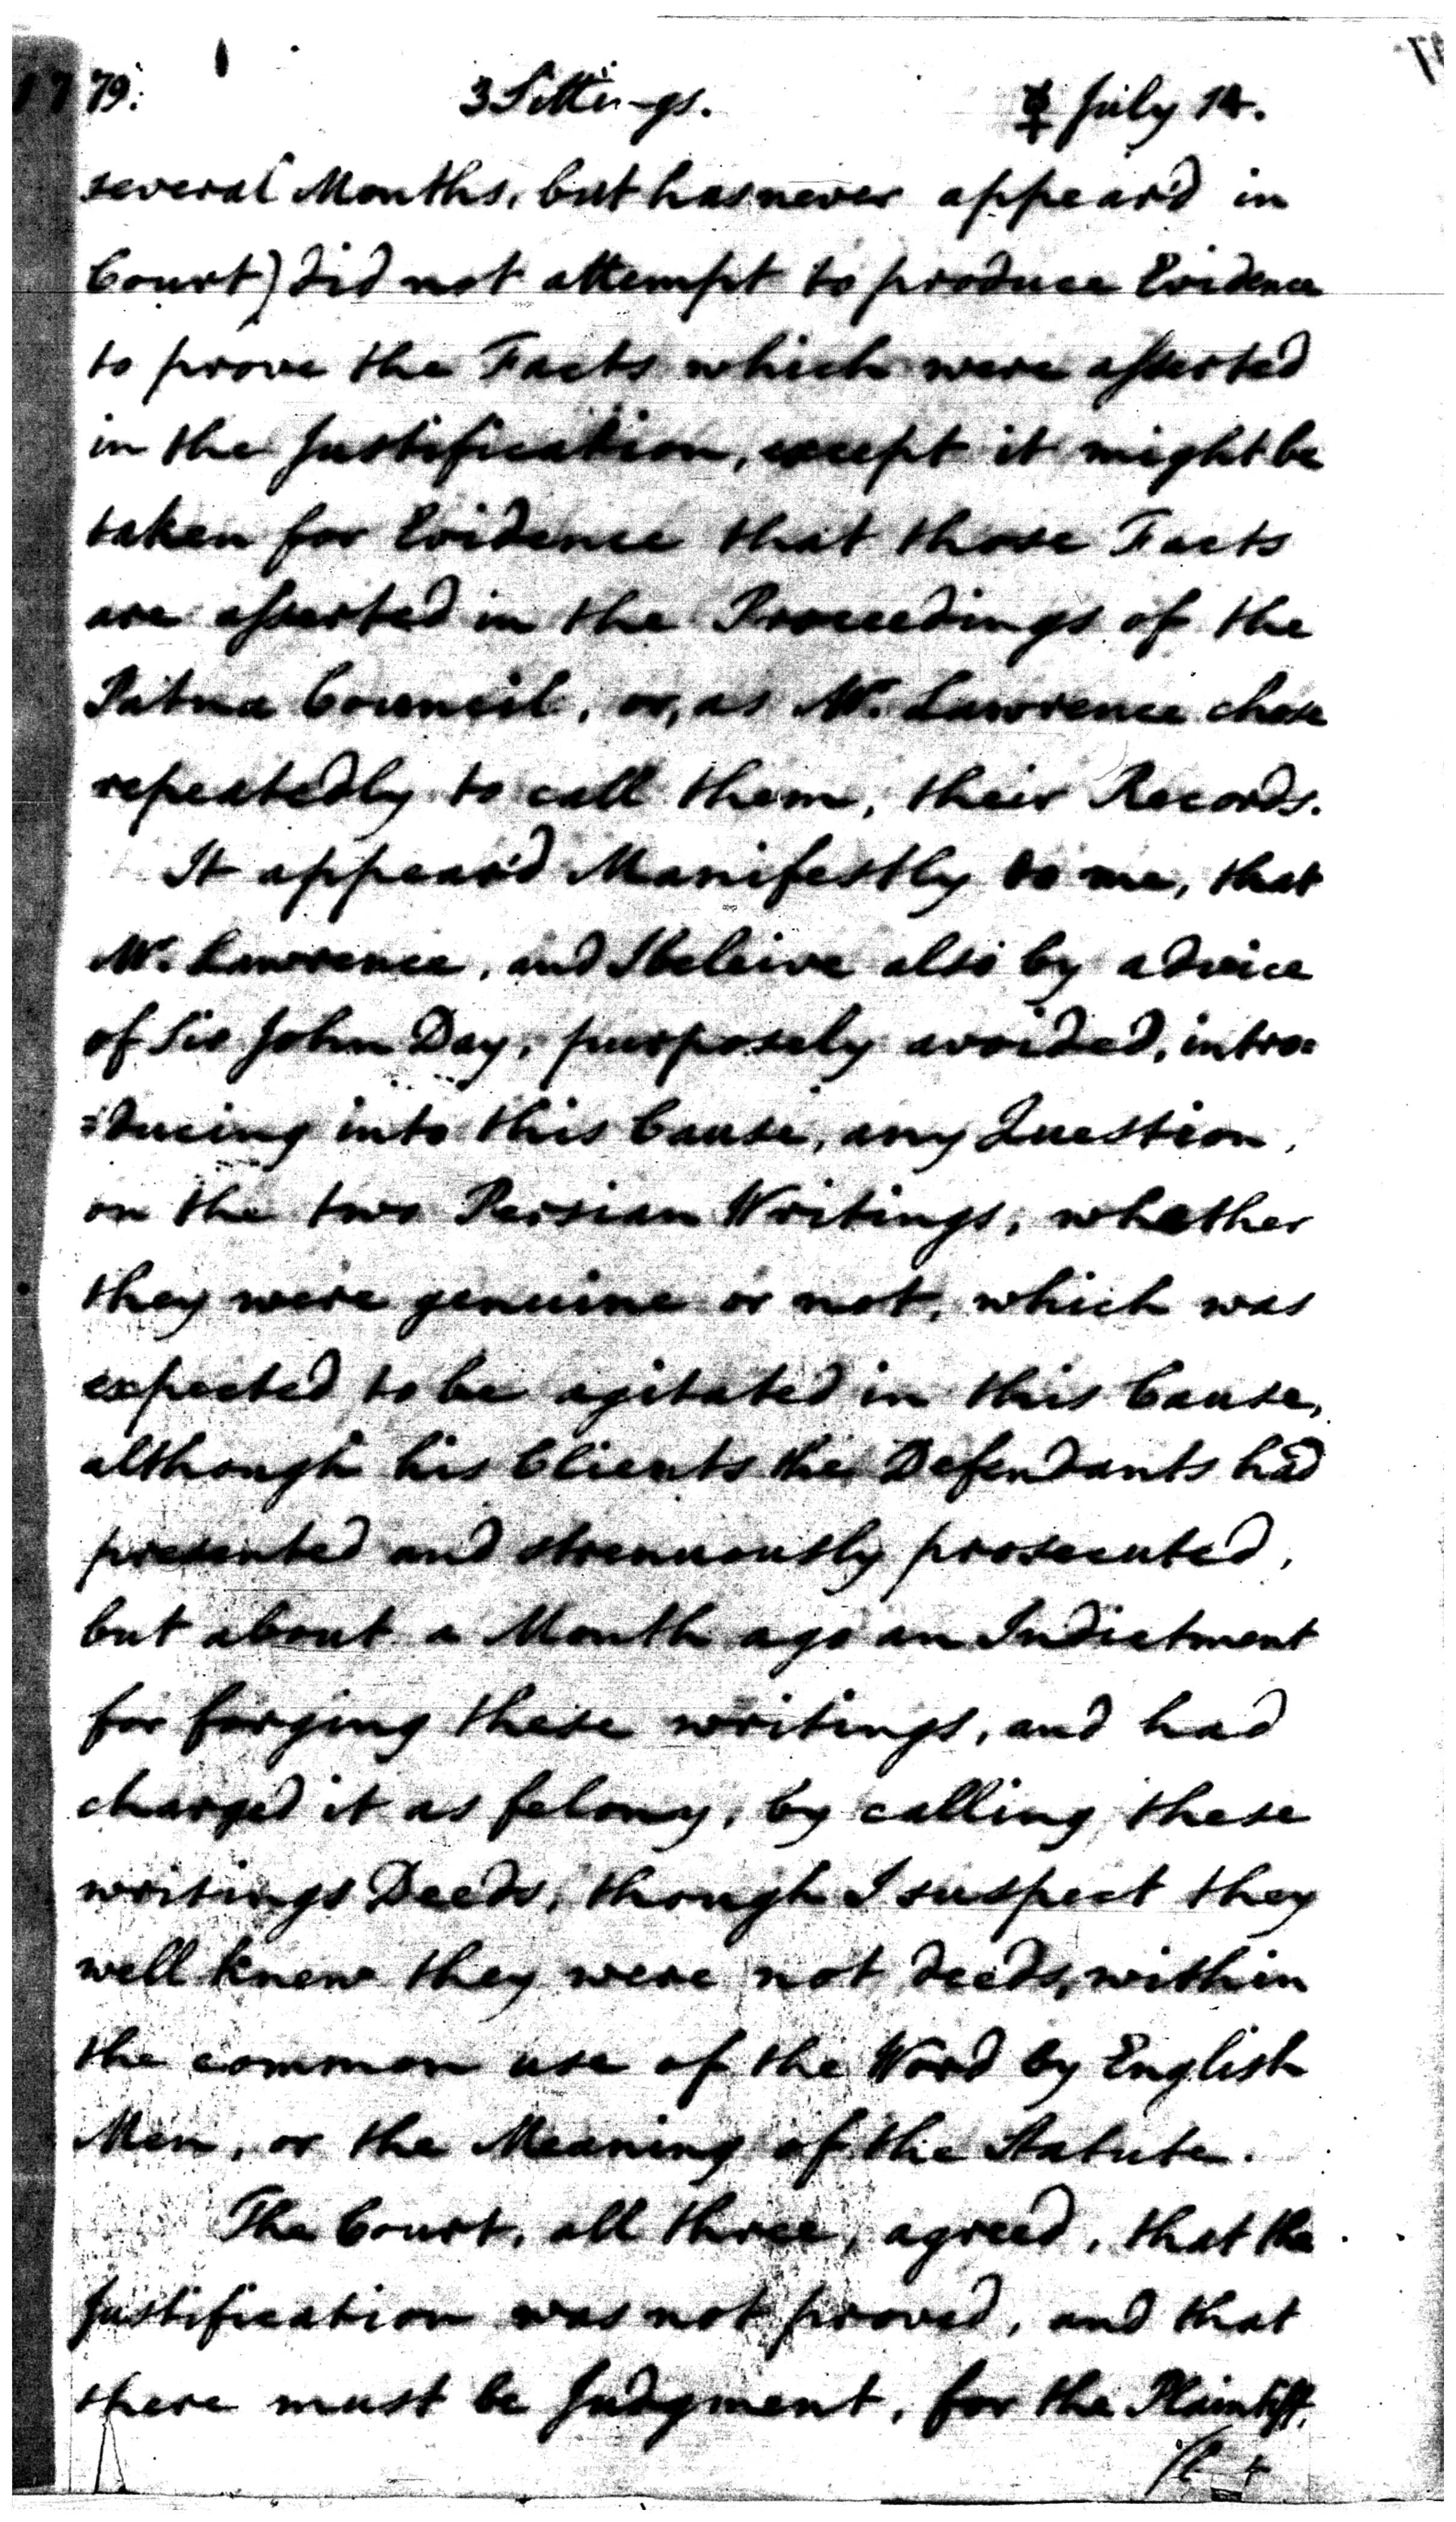 1779. 3 Sittings. ☿ July 14.
several Months, but has never appear'd in
Court) did not attempt to produce Evidence
to prove the Facts which were asserted
in the Justification, except it might be
taken for Evidence that those Facts
are asserted in the Proceedings of the
Patna Council, or, as Mr. Lawrence chose
repeatedly to call them, their Records.
It appear'd Manifestly to me, that
Mr. Lawrence, and I beleive also by advice
of Sir John Day, purposely avoided, intro=
=ducing into this Cause, any Question,
on the two Persian Writings, whether
they were genuine or not, which was
expected to be agitated in this Cause,
although his Clients the Defendants had
presented and strenuously prosecuted,
but about a Month ago an Indictment
for forging these writings, and had
charged it as felony, by calling these
writings Deeds, though I suspect they
well knew they were not deeds, within
the common use of the Word by English
Men, or the Meaning of the Statute.
The Court, all three, agreed, that the
Justification was not proved, and that
there must be Judgment, for the Plaintiff,